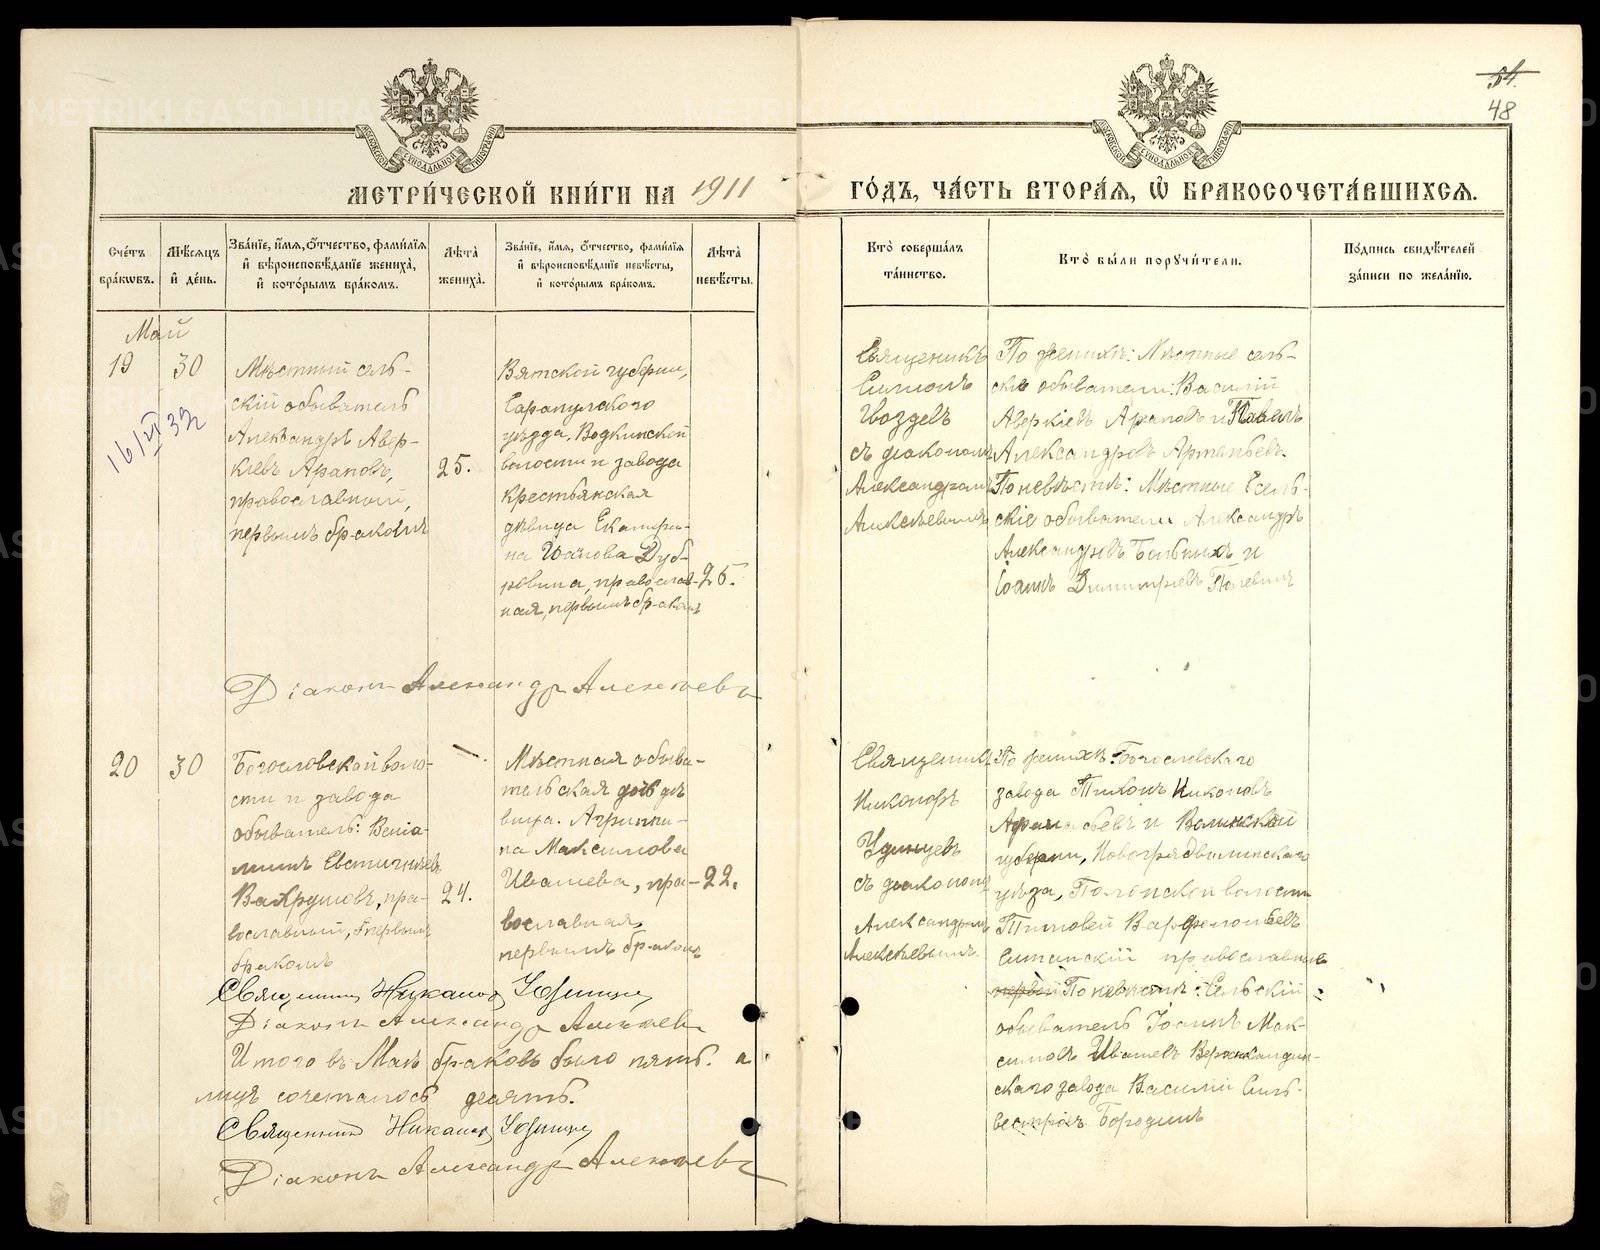 54.
48
МЕТРИ́ЧЕСКОЙ КНИ́ГИ НА 1911
ГО́ДЪ, ЧА́СТЬ ВТОРА́Я, Ѡ҆ БРАКОСОЧЕТА́ВШИХСЯ.
Сче́тъ бра́кѡвъ.
Мѣ́сяцъ и҆ де́нь.
Зва́нїе, и҆́мя, ѻ҆́тчество, фами́лїя
и҆ вѣроисповѣ́данїе жениха̀,
и҆ кото́рымъ бра́комъ.
Лѣта̀ жениха̀.
Зва́нїе, и҆́мя, ѻ҆́тчество, фами́лїя
и҆ вѣроисповѣ́данїе невѣ́сты,
и҆ кото́рымъ бра́комъ.
Лѣта̀ невѣ́сты.
Кто̀ соверша́лъ
та́инство.
Кто̀ бы́ли порꙋчи́тели.
По́дпись свидѣ́телей
за́писи по жела́нїю.
Май
19
30
16/VI 32
Мѣстный сель-
скій обыватель
Александръ Авер-
кіевъ Араповъ,
православный,
первымъ бракомъ
25.
Вятской губерніи,
Сарапулскаго
уѣзда, Водкинской
волости и завода
крестьянская
дѣвица Екатери-
на Иванова Дуб-
ровина, православ-
ная, первымъ бракомъ
25.
Священникъ
Симеонъ
Гвоздевъ
съ діакономъ
Александромъ
Алексѣевымъ
По женихѣ: Мѣстные сель-
скіе обыватели: Василій
Аверкіевъ Араповъ и Павелъ
Александровъ Артемьевъ.
По невѣстѣ: Мѣстные сель-
скіе обыватели Александръ
Александровъ и
Іоаннъ Димитріевъ
Діаконъ Александръ Алексѣевъ
20
30
Богословской воло-
сти и завода
обыватель: Веніа-
минъ Евстигнѣевъ
Вахрушовъ, пра-
вославный, первымъ
бракомъ
24.
Мѣстная обыва-
тельская дочь дѣ-
вица. Агриппи-
на Максимова
Ивашева, пра-
вославная,
первымъ бракомъ
22.
Священникъ
Никаноръ
Удинцевъ
съ діакономъ
Александромъ
Алексѣевымъ.
По женихѣ: Богословскаго
завода Тихонъ Никоновъ
и Волынской
губерніи, Новоградволынскаго
уѣзда, Полонской волости
Тимофей Варфоломѣевъ
православные
первой По невѣстѣ: Сельскій
обыватель Іоаннъ Мак-
симовъ Ивашевъ
скаго завода Василій Силь-
вестровъ Бородинъ
Священникъ Никаноръ Удинцевъ
Діаконъ Александръ Алексѣевъ
Итого въ Маѣ браковъ было пять. а
лицъ сочеталось десять.
Священникъ Никаноръ Удинцевъ
Діаконъ Александръ Алексѣевъ